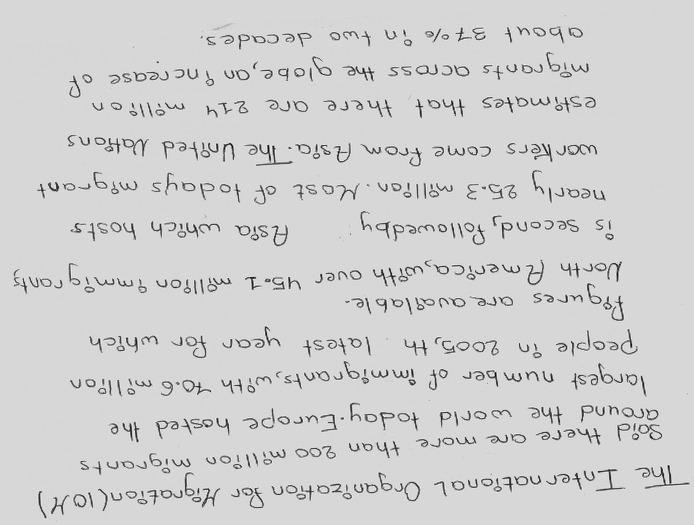 The International Organization for Migration (IOM)
Said there are more than 200 million migrants
around the world today. Europe hosted the
largest number of immigrants, with 70.6 million
people in 2005, th latest year for which
figures are available.
North America, with over 45.1 million immigrants
is second, followedby Asia which hosts
nearly 25.3 million. Most of todays migrant
workers come from Asia. The United Nations
estimates that there are 214 million
migrants across the globe, an increase of
about 37% in two decades.